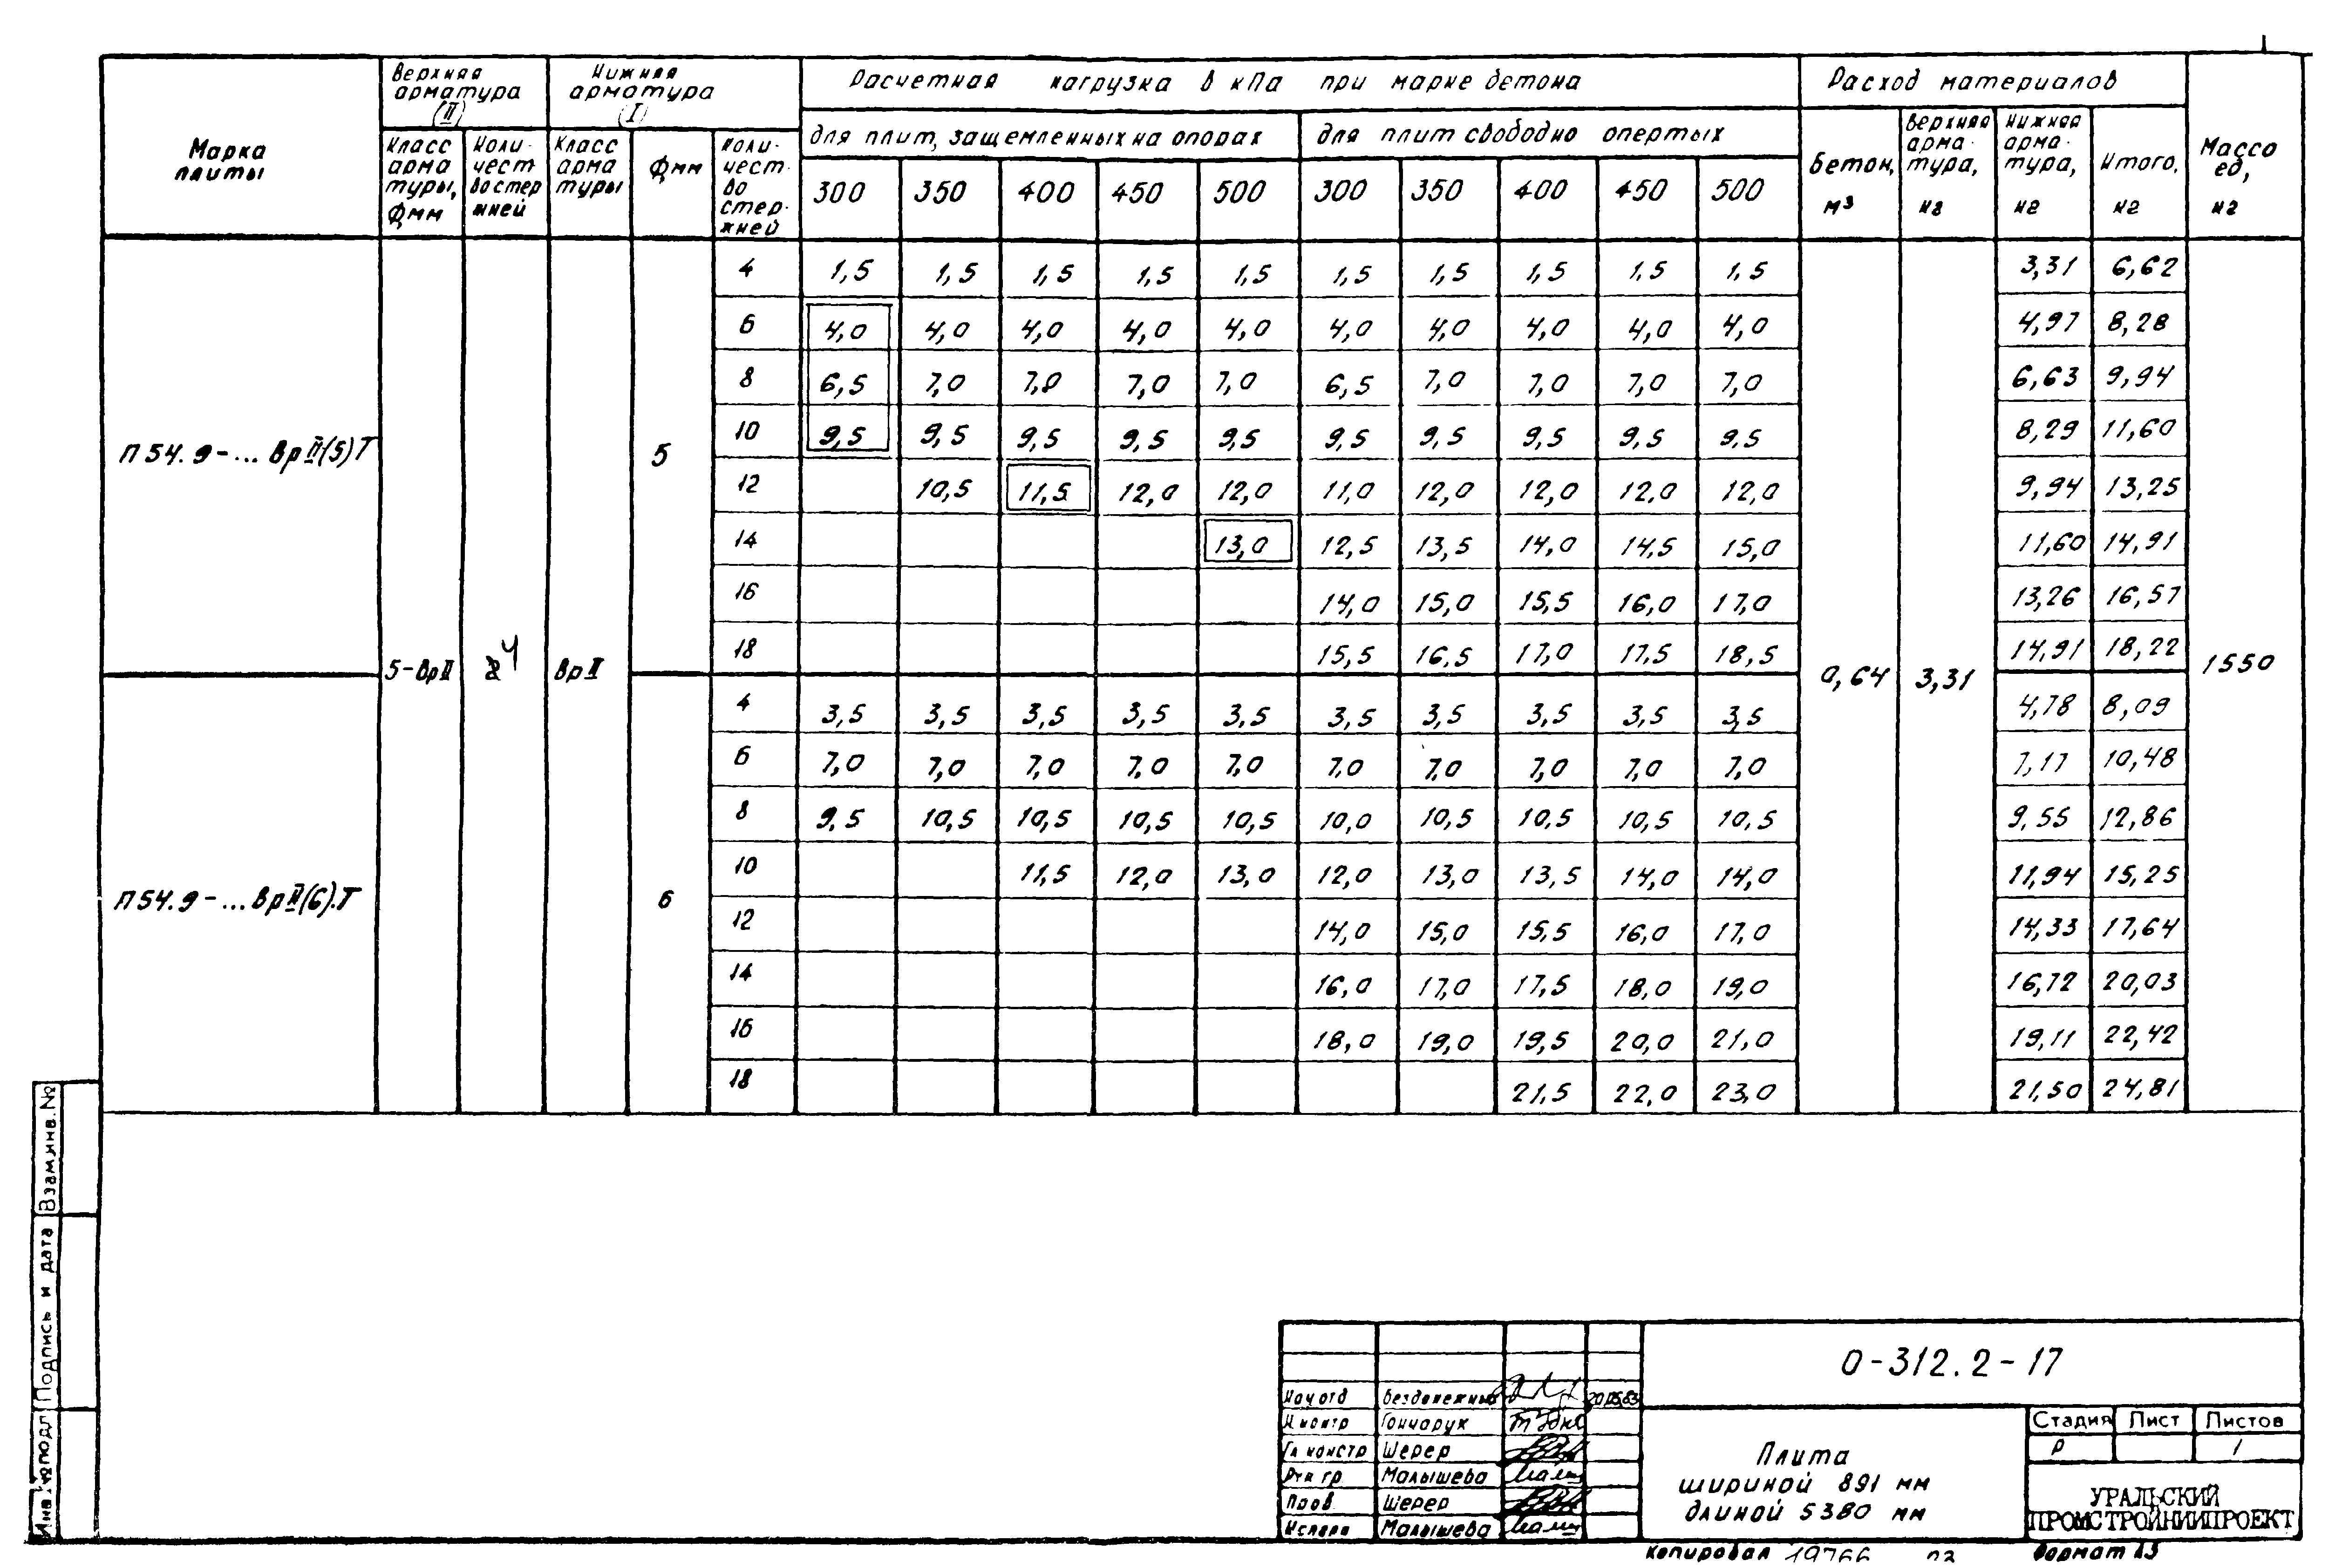 Марка плиты
Верхняя арматура (II)
Нижняя арматура (I)
Расчетная нагрузка в кПа при марке бетона
Расход материалов
Масса ед, кг
Класс арматуры, Фмм
Количество стержней
Класс арматуры
Фмм
Количество стержней
для плит, защемленных на опорах
для плит свободно опертых
Бетон, м³
Верхняя арматура, кг
Нижняя арматура, кг
Итого, кг
300 350 400 450 500 300 350 400 450 500
П54.9-...ВрII(5)Т
5
4 1,5 1,5 1,5 1,5 1,5 1,5 1,5 1,5 1,5 1,5 3,31 6,62
6 4,0 4,0 4,0 4,0 4,0 4,0 4,0 4,0 4,0 4,0 4,97 8,28
8 6,5 7,0 7,0 7,0 7,0 6,5 7,0 7,0 7,0 7,0 6,63 9,94
10 9,5 9,5 9,5 9,5 9,5 9,5 9,5 9,5 9,5 9,5 8,29 11,60
12 10,5 11,5 12,0 12,0 11,0 12,0 12,0 12,0 12,0 9,94 13,25
14 13,0 12,5 13,5 14,0 14,5 15,0 11,60 14,91
16 14,0 15,0 15,5 16,0 17,0 13,26 16,57
18 15,5 16,5 17,0 17,5 18,5 14,91 18,22
5-ВрII 4 ВрII 0,64 3,31 1550
П54.9-...ВрII(6).Т
6
4 3,5 3,5 3,5 3,5 3,5 3,5 3,5 3,5 3,5 3,5 4,78 8,09
6 7,0 7,0 7,0 7,0 7,0 7,0 7,0 7,0 7,0 7,0 7,17 10,48
8 9,5 10,5 10,5 10,5 10,5 10,0 10,5 10,5 10,5 10,5 9,55 12,86
10 11,5 12,0 13,0 12,0 13,0 13,5 14,0 14,0 11,94 15,25
12 14,0 15,0 15,5 16,0 17,0 14,33 17,64
14 16,0 17,0 17,5 18,0 19,0 16,72 20,03
16 18,0 19,0 19,5 20,0 21,0 19,11 22,42
18 21,5 22,0 23,0 21,50 24,81
Взам.инв.№
Подпись и дата
Инв.№подл
0-312.2-17
Нач отд
Н контр Гончарук
Гл констр Шерер
Рук гр Малышева
Пров Шерер
Исполн Малышева
Плита
шириной 891 мм
длиной 5380 мм
Стадия Лист Листов
Р 1
УРАЛЬСКИЙ
ПРОМСТРОЙНИИПРОЕКТ
Копировал 19766
Формат А3